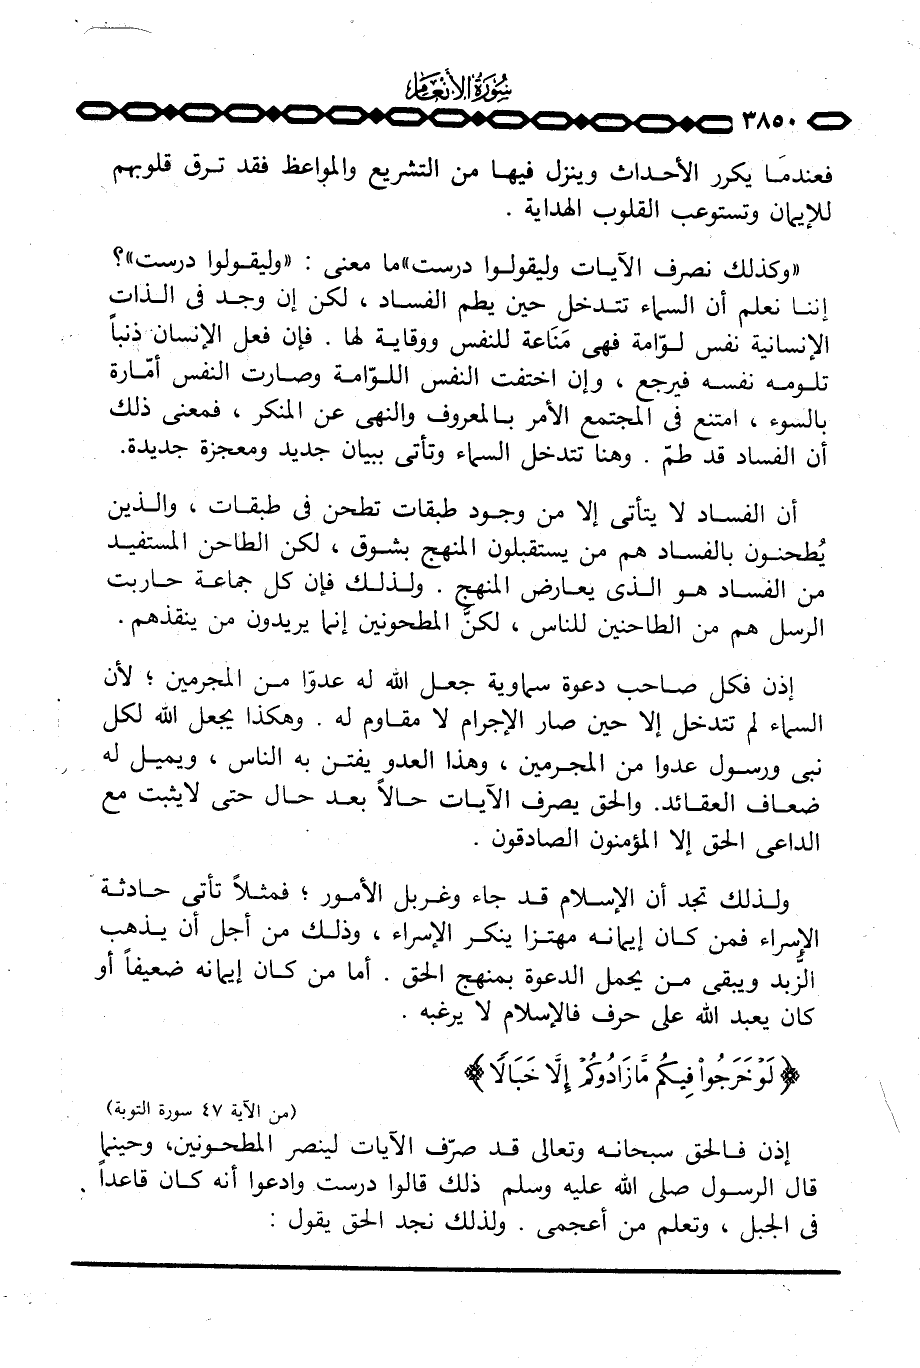 سورة الأنعام
٣٨٥٠
فعندما يكرر الأحداث وينزل فيها من التشريع والمواعظ فقد ترق قلوبهم
للإيمان وتستوعب القلوب الهداية .
«وكذلك نصرف الآيات وليقولوا درست»ما معنى : «وليقولوا درست»؟
إننا نعلم أن السماء تتدخل حين يطم الفساد ، لكن إن وجد فى الذات
الإنسانية نفس لوّامة فهى مَنَاعة للنفس ووقاية لها . فإن فعل الإنسان ذنباً
تلومه نفسه فيرجع ، وإن اختفت النفس اللوّامة وصارت النفس أمّارة
بالسوء ، امتنع فى المجتمع الأمر بالمعروف والنهى عن المنكر ، فمعنى ذلك
أن الفساد قد طمّ . وهنا تتدخل السماء وتأتى ببيان جديد ومعجزة جديدة.
أن الفساد لا يتأتى إلا من وجود طبقات تطحن فى طبقات ، والذين
يُطحنون بالفساد هم من يستقبلون المنهج بشوق ، لكن الطاحن المستفيد
من الفساد هو الذى يعارض المنهج . ولذلك فإن كل جماعة حاربت
الرسل هم من الطاحنين للناس ، لكنَّ المطحونين إنما يريدون من ينقذهم .
إذن فكل صاحب دعوة سماوية جعل الله له عدوّا من المجرمين ؛ لأن
السماء لم تتدخل إلا حين صار الإجرام لا مقاوم له . وهكذا يجعل الله لكل
نبى ورسول عدوا من المجرمين ، وهذا العدو يفتن به الناس ، ويميل له
ضعاف العقائد. والحق يصرف الآيات حالاً بعد حال حتى لايثبت مع
الداعى الحق إلا المؤمنون الصادقون .
ولذلك تجد أن الإسلام قد جاء وغربل الأمور ؛ فمثلاً تأتى حادثة
الإسراء فمن كان إيمانه مهتزا ينكر الإسراء ، وذلك من أجل أن يذهب
الزبد ويبقى من يحمل الدعوة بمنهج الحق . أما من كان إيمانه ضعيفاً أو
كان يعبد الله على حرف فالإسلام لا يرغبه .
﴿ لَوْ خَرَجُواْ فِيكُم مَّا زَادُوكُمْ إِلَّا خَبَالًا ﴾
(من الآية ٤٧ سورة التوبة)
إذن فالحق سبحانه وتعالى قد صرّف الآيات لينصر المطحونين، وحينما
قال الرسول صلى الله عليه وسلم ذلك قالوا درست وادعوا أنه كان قاعداً
فى الجبل ، وتعلم من أعجمى . ولذلك نجد الحق يقول :